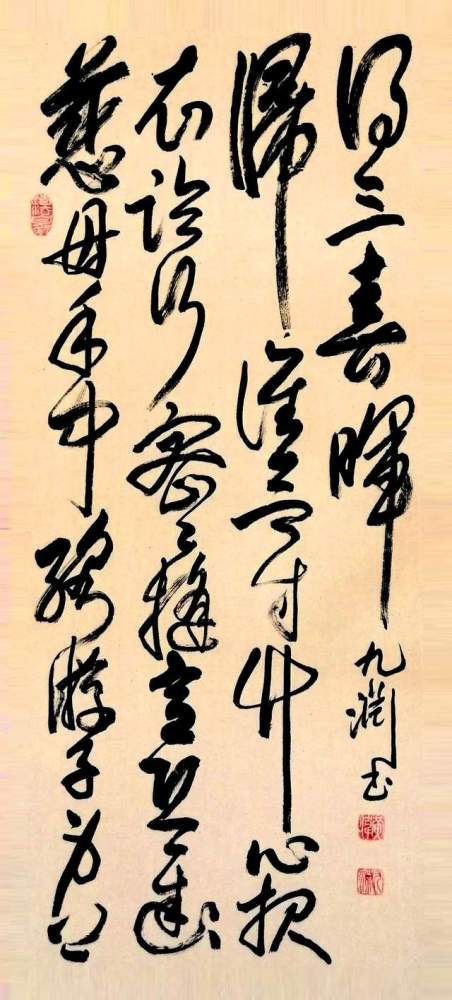 慈母手中線游子身上
衣臨行密々縫意恐遲々
歸誰言寸草心報
得三春暉
九潤書